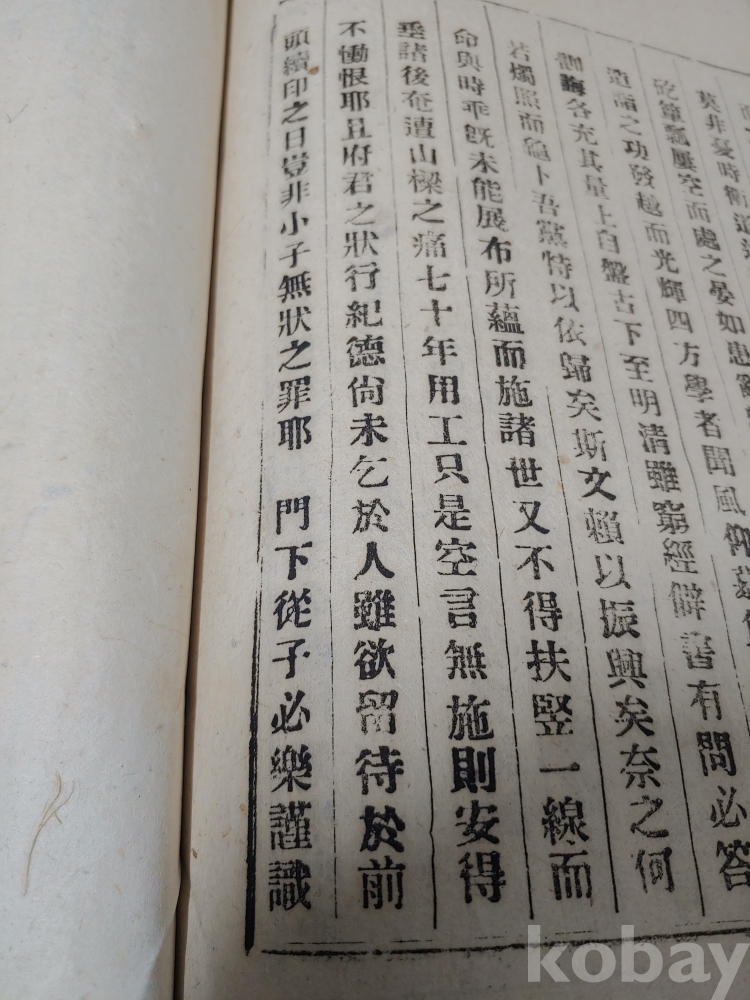 莫非憂時衛道
砭簞瓢屢空而處之晏如患
造詣之功發越而光輝四方學者聞風仰慕
訓誨各充其量上自盤古下至明清雖窮經僻書有問必答
若燭照而龜卜吾黨特以依歸矣斯文賴以振興矣奈之何
命與時乖旣未能展布所蘊而施諸世又不得扶竪一線而
垂諸後奄遭山樑之痛七十年用工只是空言無施則安得
不慟恨耶且府君之狀行紀德尙未乞於人雖欲留待於前
頭續印之日豈非小子無狀之罪耶 門下從子必樂謹識
kobay